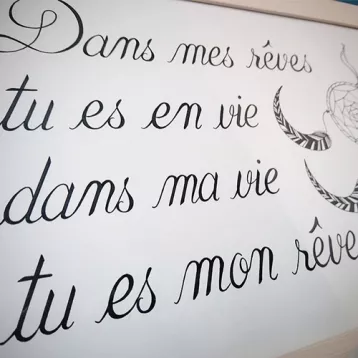 Dans mes rêves
tu es en vie
dans ma vie
tu es mon rêve